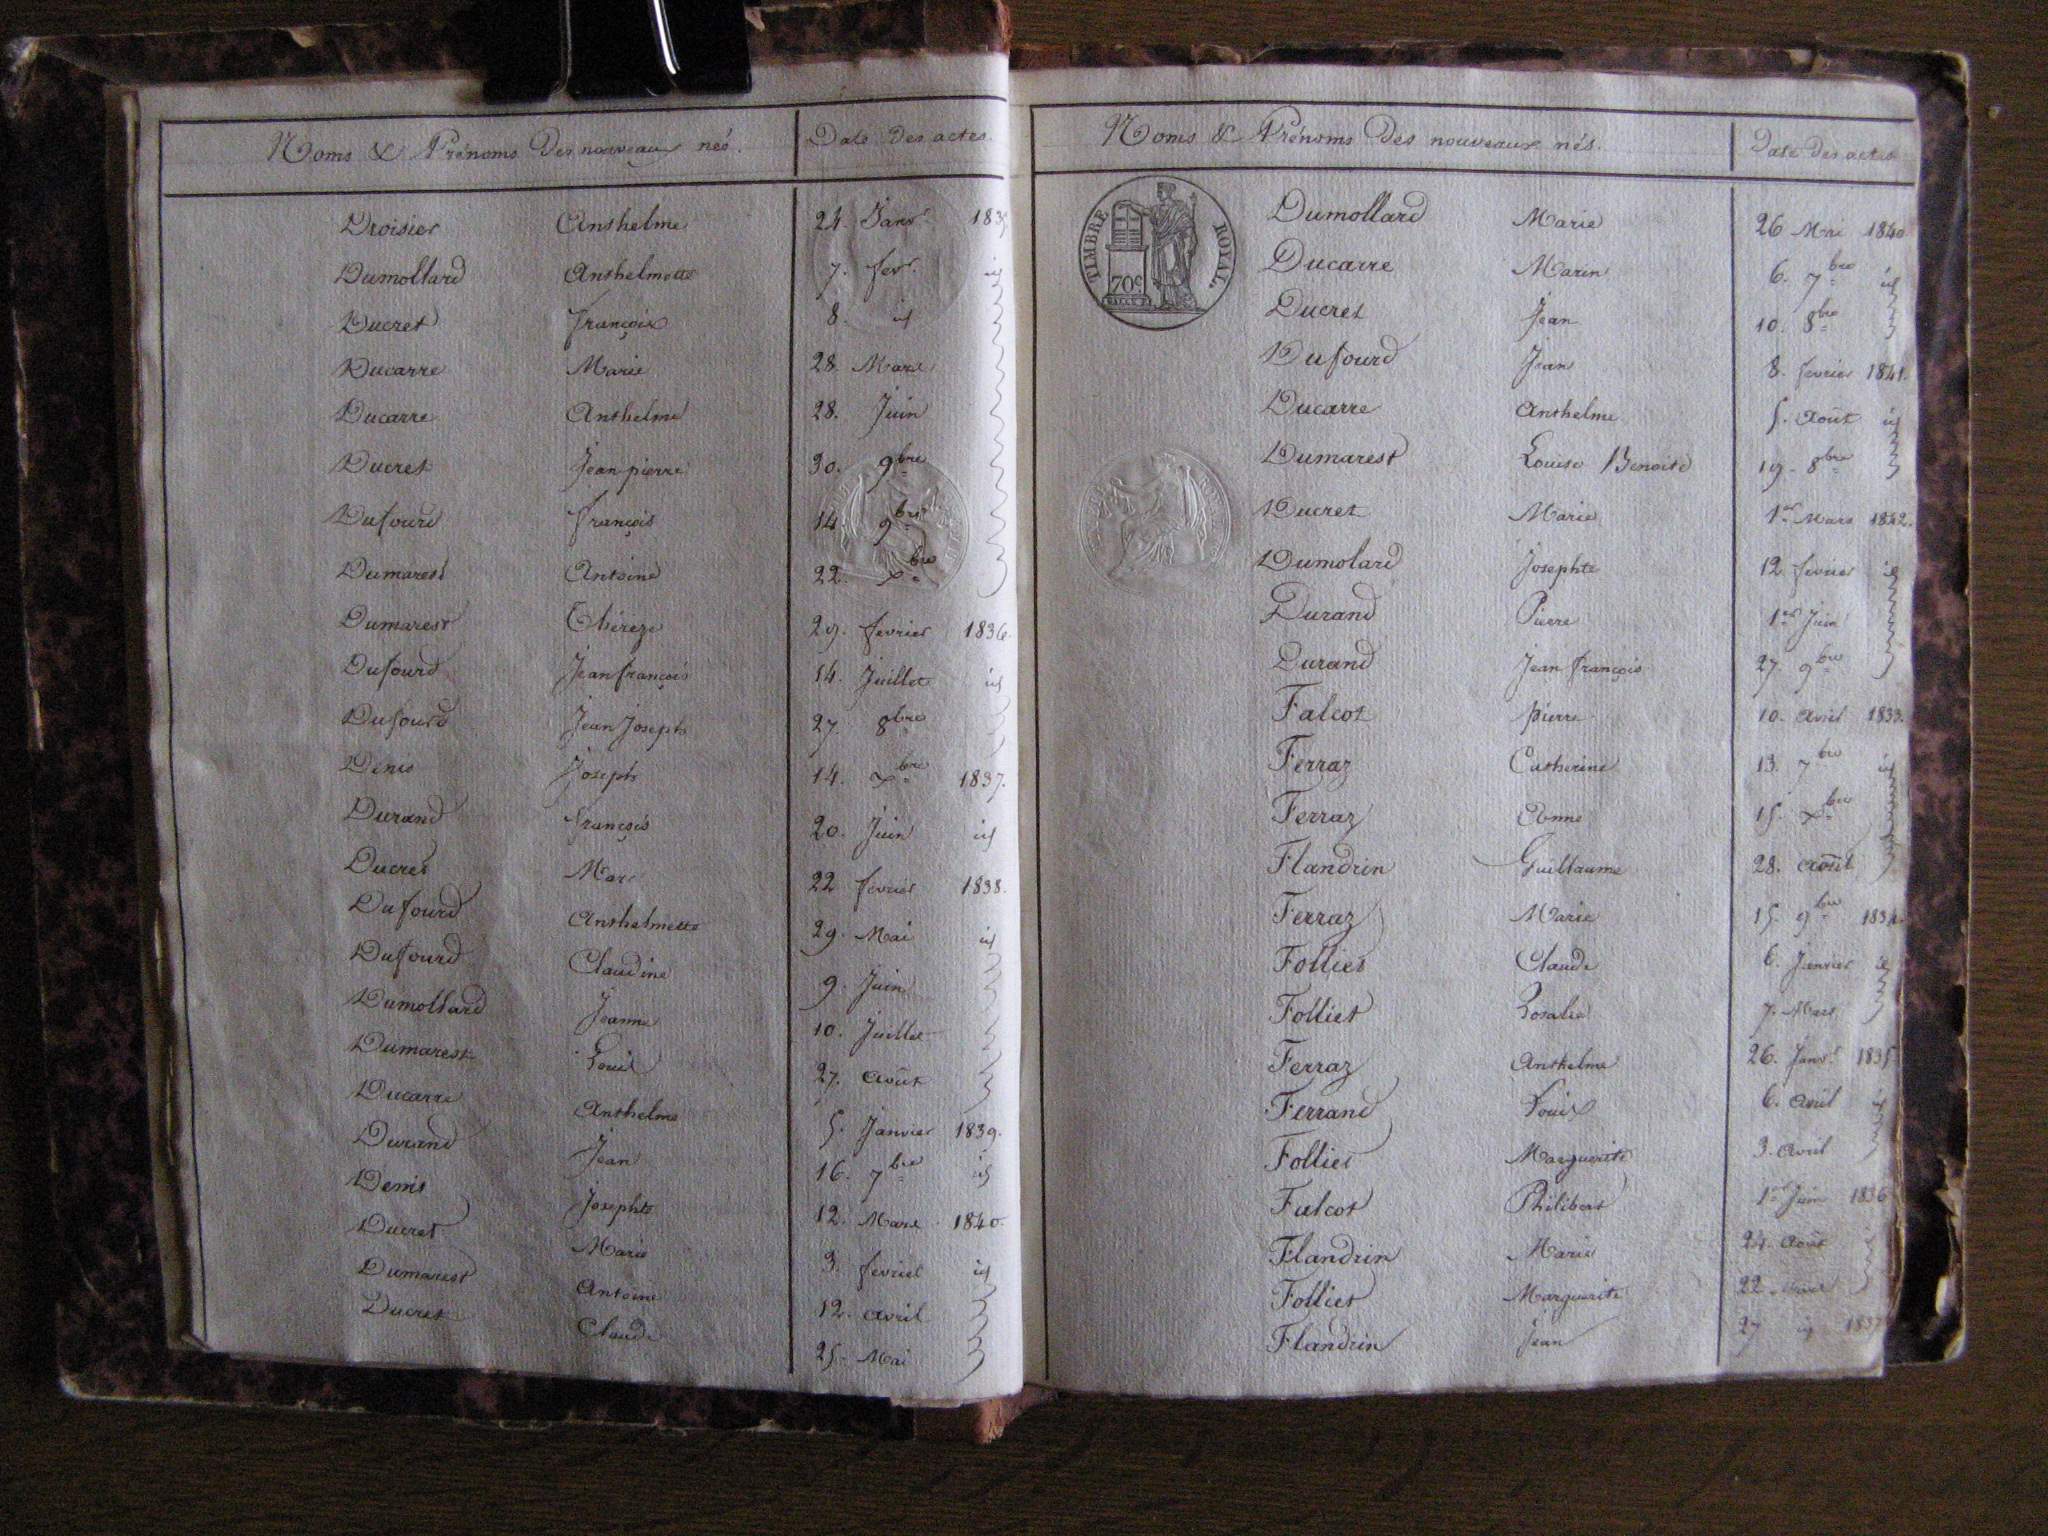 Noms & Prénoms Des nouveaux nés. Date Des actes.
Droisier Anthelme 24. Janv.r 1835
Dumollard Anthelmette 7. fev.r id
Ducret françois 8. id
Ducarre Marie 28. Mars
Ducarre Anthelme 28. Juin
Ducret Jean pierre 30. 9bre
Dufourd françois 14 9bre
Dumarest Antoine 22. Xbre
Dumarest Thérèze 29. fevrier 1836.
Dufourd Jean françois 14. Juillet id
Dufourd Jean Joseph 27. 8bre
Denis Joseph 14. Xbre 1837.
Durand françois 20. Juin id
Ducret Marc 22 fevrier 1838.
Dufourd Anthelmette 29. Mai id
Dufourd Claudine 9. Juin
Dumollard Jeanne 10. Juillet
Dumarest Louis 27. août
Ducarre Anthelme 5. Janvier 1839.
Durand Jean 16. 7bre id
Denis Josephte 12. Mars 1840.
Ducret Marie 3. fevrier id
Dumarest Antoine 12. avril
Ducret Claude 25. Mai
Noms & Prénoms Des nouveaux nés. Date Des actes
TIMBRE ROYAL.
70c
Dumollard Marie 26 Mai 1840
Ducarre Marin 6. 7bre id
Ducret Jean 10. 8bre
Dufourd Jean 8. fevrier 1841.
Ducarre Anthelme 5. Août id
Dumarest Louise Benoite 19. 8bre
Ducret Marie 1er Mars 1842.
Dumolard Josephte 12 fevrier id
Durand Pierre 1er Juin
Durand Jean françois 27. 9bre
Falcot pierre 10. avril 1833.
Ferraz Catherine 13. 7bre id
Ferraz Anne 15. Xbre
Flandrin Guillaume 28. août
Ferraz Marie 15. 9bre 1834.
Folliet Claude 6. Janvier id
Folliet Rosalie 7. Mars
Ferraz Anthelme 26. Janv.r 1835
Ferrand Louis 6. avril id
Folliet Marguerite 3. avril
Falcot Philibert 1er Juin 1836
Flandrin Marie 24. août
Folliet Marguerite 22.
Flandrin Jean 27 id 1837